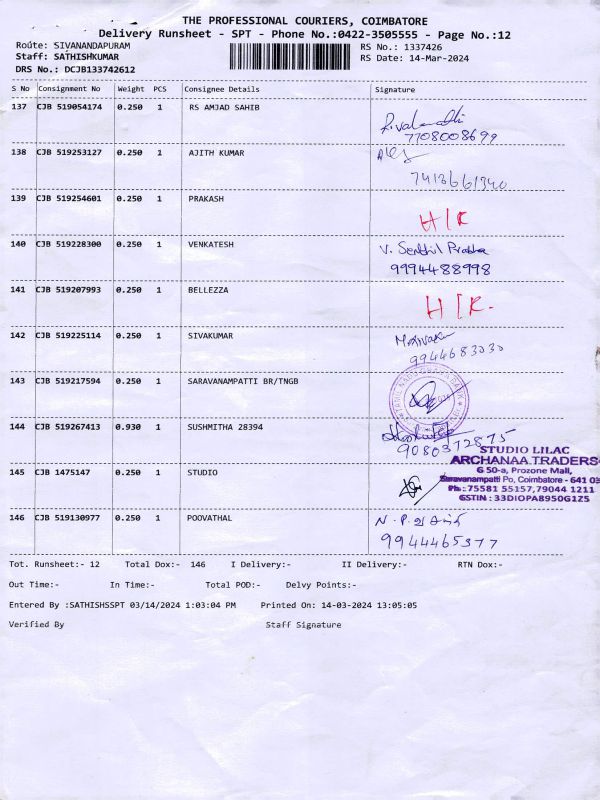 THE PROFESSIONAL COURIERS, COIMBATORE
Delivery Runsheet - SPT - Phone No.:0422-3505555 - Page No.:12
Route: SIVANANDAPURAM RS No.: 1337426
Staff: SATHISHKUMAR RS Date: 14-Mar-2024
DRS No.: DCJB133742612
S No Consignment No Weight PCS Consignee Details Signature
137 CJB 519054174 0.250 1 RS AMJAD SAHIB
7708008699
138 CJB 519253127 0.250 1 AJITH KUMAR
7413661340
139 CJB 519254601 0.250 1 PRAKASH
H/R
140 CJB 519228300 0.250 1 VENKATESH V. Senthil Prabha
9994488998
141 CJB 519207993 0.250 1 BELLEZZA
H/R.
142 CJB 519225114 0.250 1 SIVAKUMAR
9944683030
143 CJB 519217594 0.250 1 SARAVANAMPATTI BR/TNGB
144 CJB 519267413 0.930 1 SUSHMITHA 28394
9080372875
STUDIO LILAC
ARCHANAA TRADERS
145 CJB 1475147 0.250 1 STUDIO G 50-a, Prozone Mall,
Saravanampatti Po, Coimbatore - 641 03
Ph.: 75581 55157,79044 1211
GSTIN : 33DIOPA8950G1Z5
146 CJB 519130977 0.250 1 POOVATHAL
9944465377
Tot. Runsheet:- 12 Total Dox:- 146 I Delivery:- II Delivery:- RTN Dox:-
Out Time:- In Time:- Total POD:- Delvy Points:-
Entered By :SATHISHSSPT 03/14/2024 1:03:04 PM Printed On: 14-03-2024 13:05:05
Verified By Staff Signature